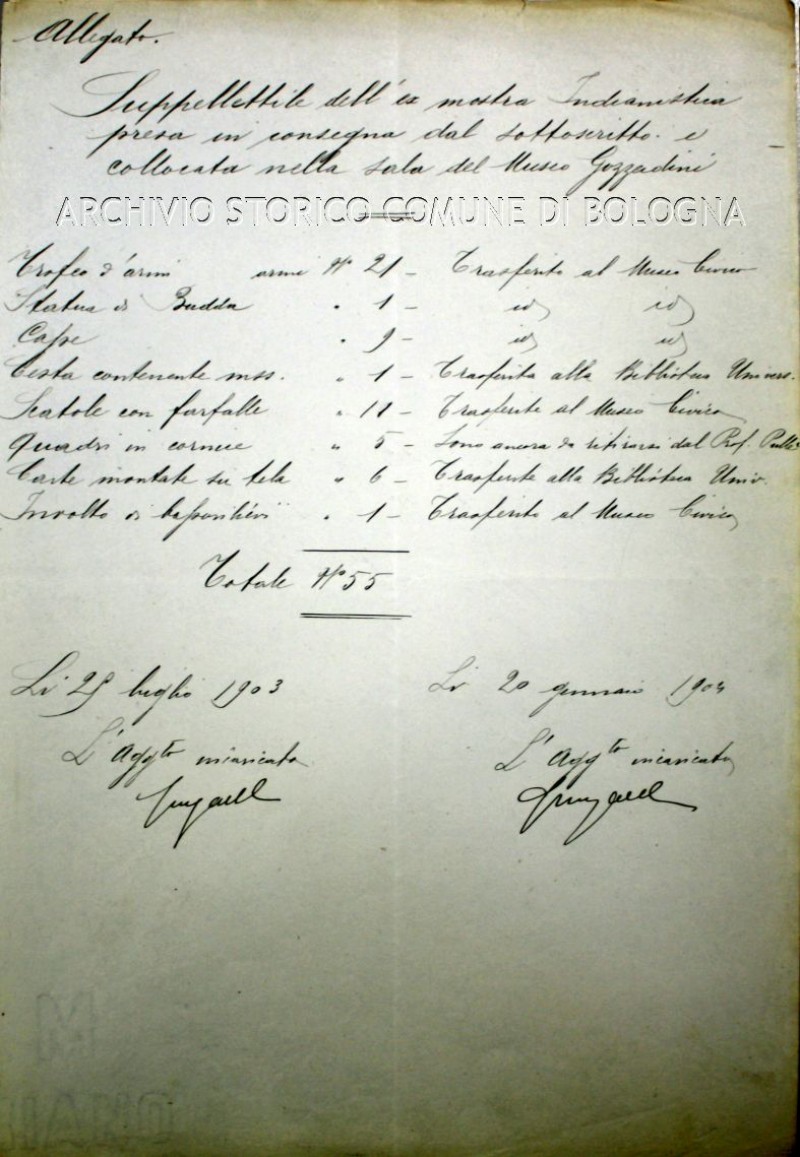 Allegato.
Suppellettile dell'ex mostra Indianistica
presa in consegna dal sottoscritto e
collocata nella sala del Museo Gozzadini
ARCHIVIO STORICO COMUNE DI BOLOGNA
Trofeo d'armi armi No 21 - Trasferito al Museo Civico
Statua di Budda " 1 - id id
Casse " 9 - id id
Cesta contenente mss. " 1 - Trasferita alla Biblioteca Univers.
Scatole con farfalle " 11 - Trasferite al Museo Civico
Quadri in cornice " 5 - Sono ancora da ritirarsi dal Prof. Pullè
Carte montate su tela " 6 - Trasferite alla Biblioteca Univ.
Involto di bassorilievi " 1 - Trasferito al Museo Civico
Totale No 55
Li 25 luglio 1903 Li 20 gennaio 1904
L'Aggto incaricato L'Aggto incaricato